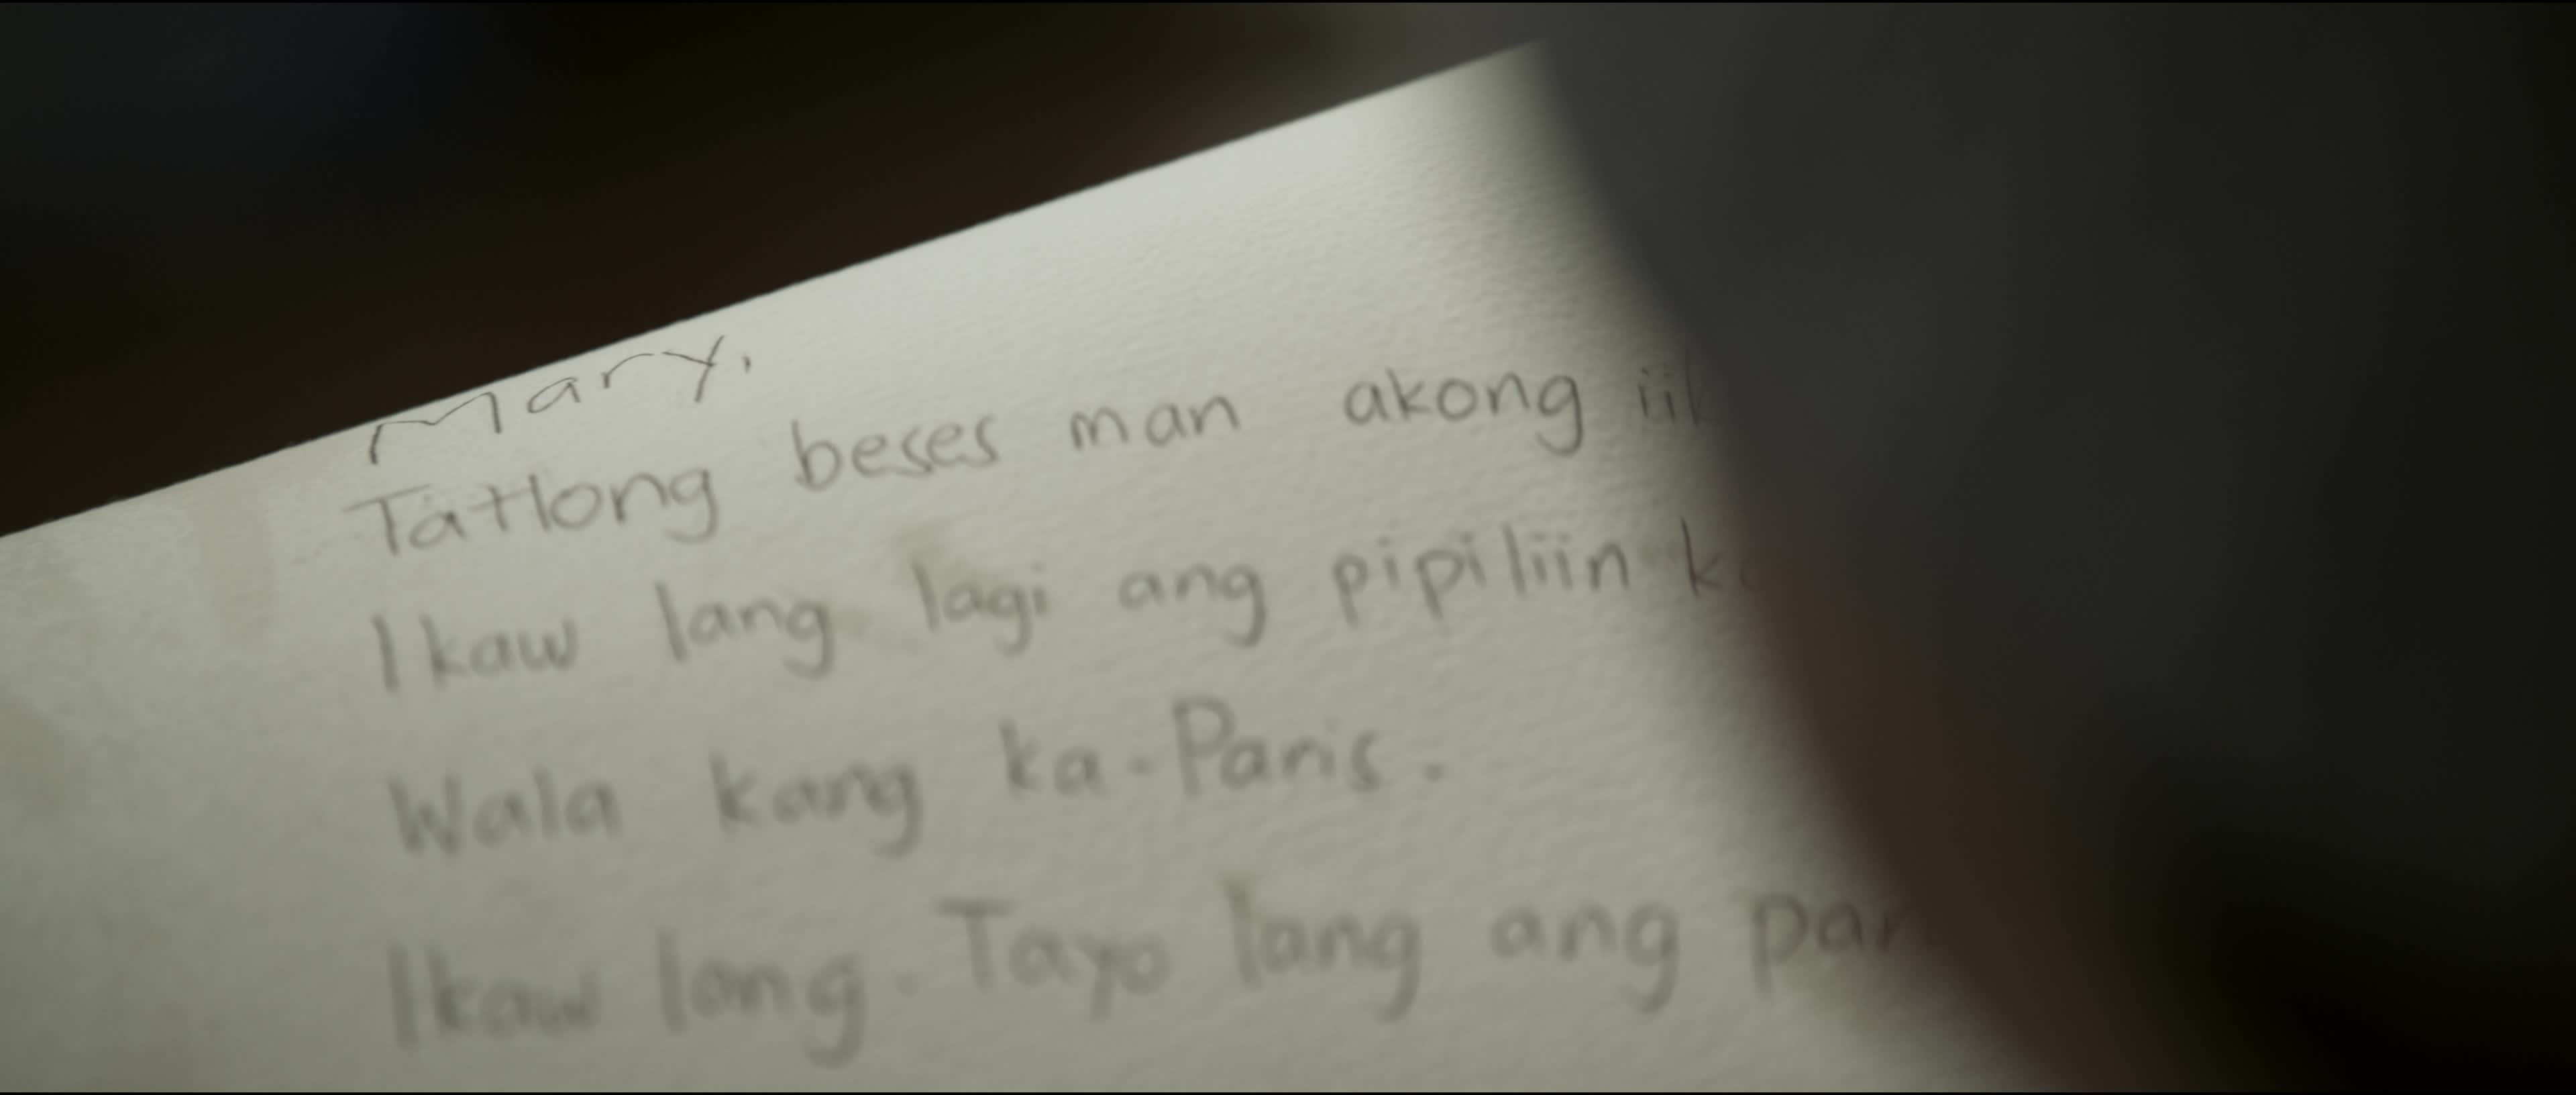 Mary,
Tatlong beses man akong
Ikaw lang lagi ang pipiliin
Wala kang ka-Paris.
Ikaw lang. Tayo lang ang